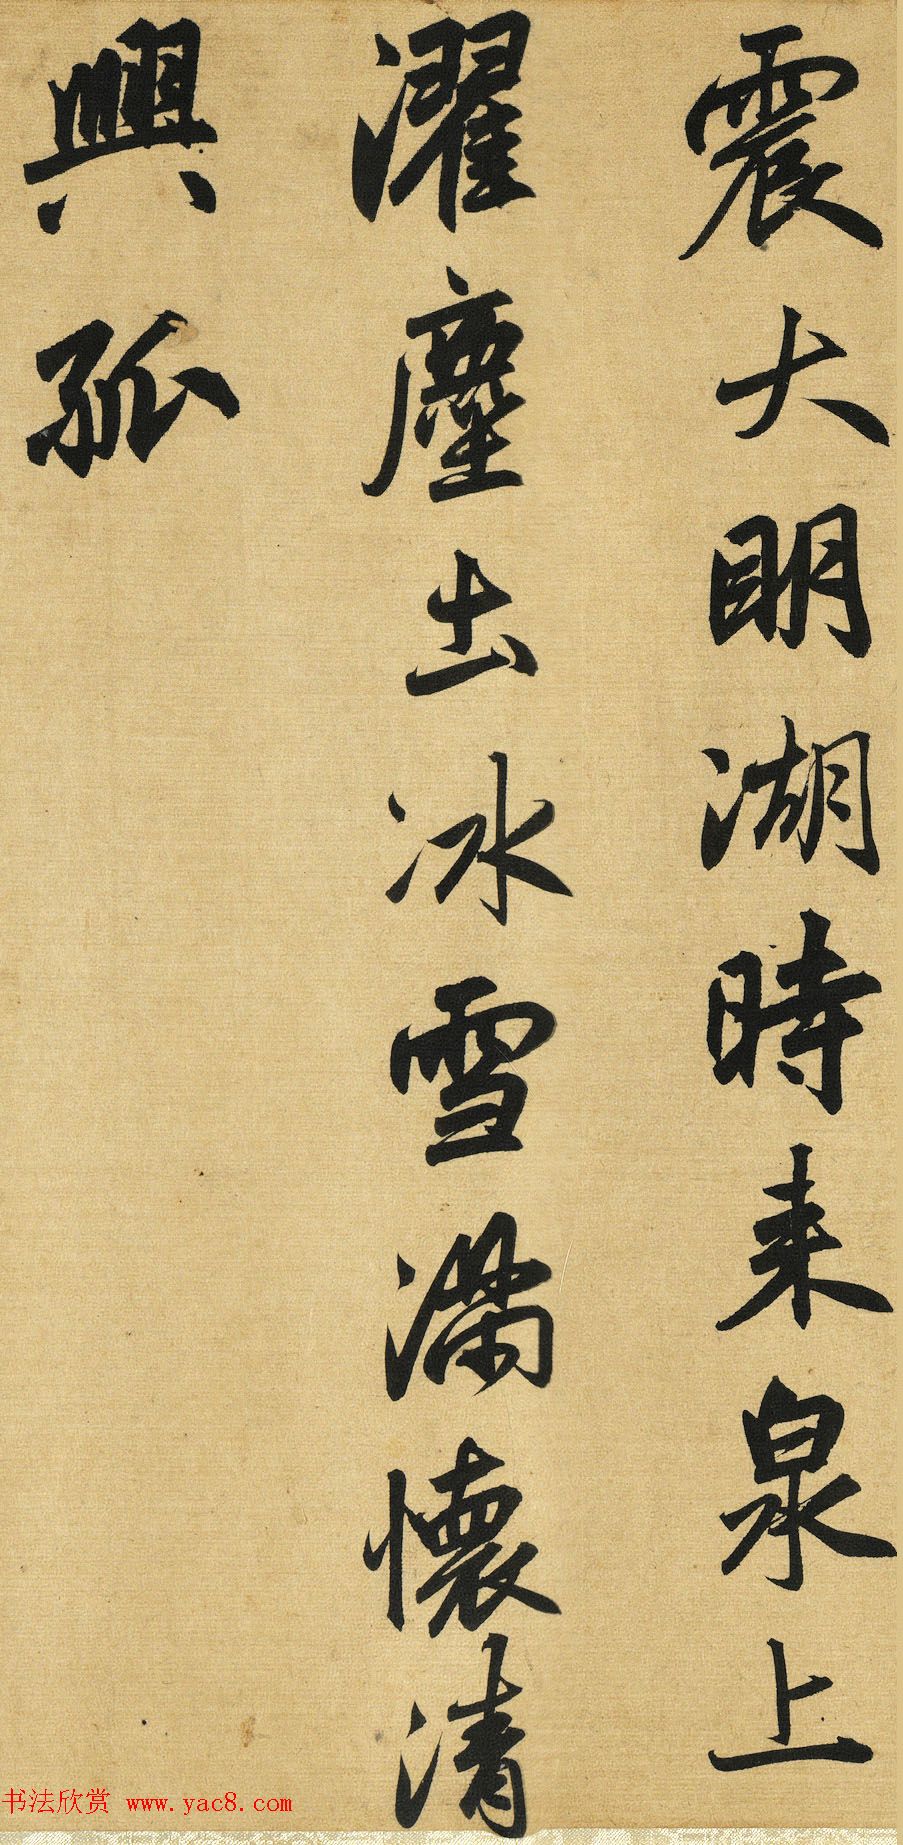 震大明湖時来泉上
濯塵出冰雪滿懷清
興孤
书法欣赏 www.yac8.com